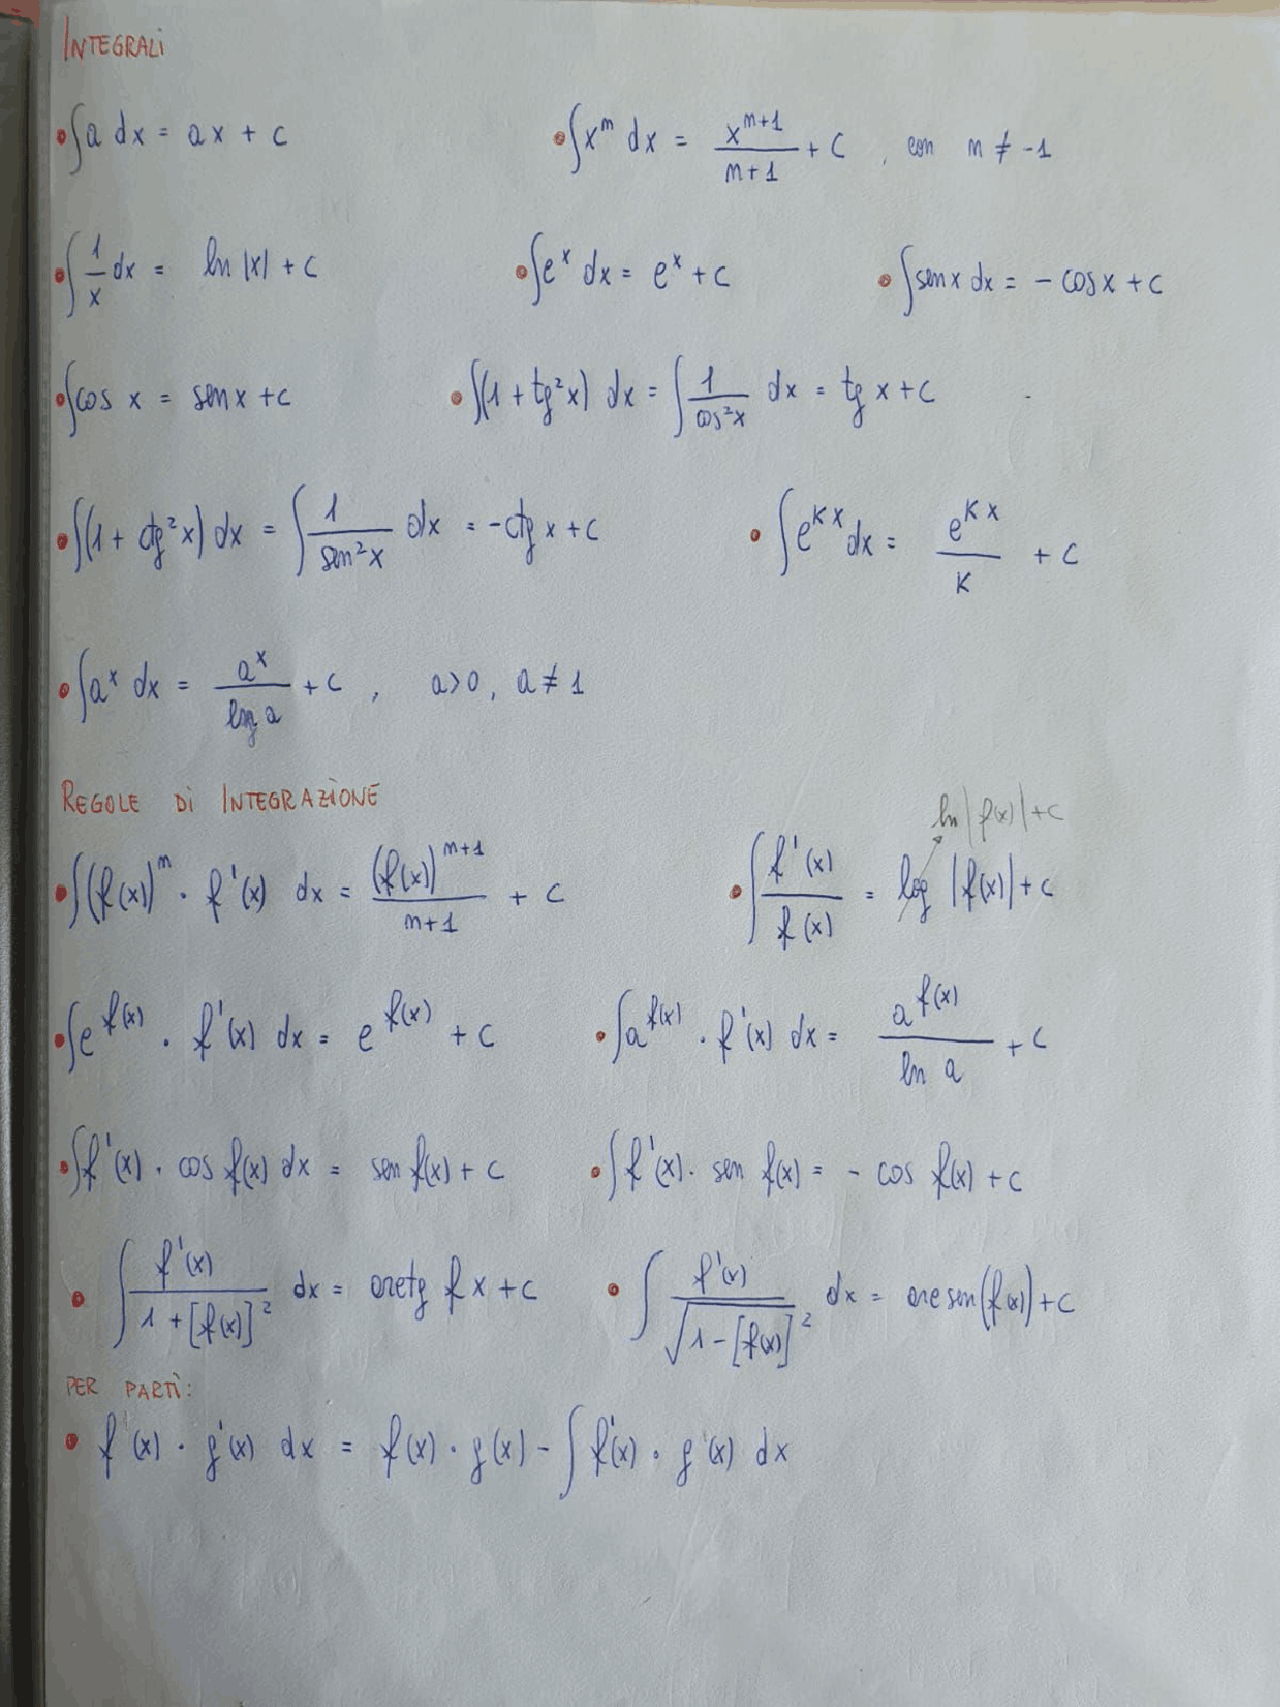 INTEGRALI
• ∫a dx = ax + c • ∫x^m dx = x^(m+1)/(m+1) + C , con m ≠ -1
• ∫1/x dx = ln |x| + c • ∫e^x dx = e^x + c • ∫sen x dx = - cos x + c
• ∫cos x = sen x + c • ∫(1 + tg²x) dx = ∫1/cos²x dx = tg x + c
• ∫(1 + ctg²x) dx = ∫1/sen²x dx = -ctg x + c • ∫e^(Kx) dx = e^(Kx)/K + c
• ∫a^x dx = a^x/log a + c , a>0, a ≠ 1
REGOLE DI INTEGRAZIONE
ln|f(x)|+c
• ∫(f(x))^m · f'(x) dx = (f(x))^(m+1)/(m+1) + c • ∫f'(x)/f(x) = log |f(x)| + c
• ∫e^f(x) · f'(x) dx = e^f(x) + c • ∫a^f(x) · f'(x) dx = a^f(x)/ln a + c
• ∫f'(x) · cos f(x) dx = sen f(x) + c • ∫f'(x) · sen f(x) = - cos f(x) + c
• ∫f'(x)/(1 + [f(x)]²) dx = arctg f x + c • ∫f'(x)/√(1 - [f(x)]²) dx = arc sen(f(x)) + c
PER PARTI:
• f (x) · g'(x) dx = f(x) · g(x) - ∫f'(x) · g (x) dx